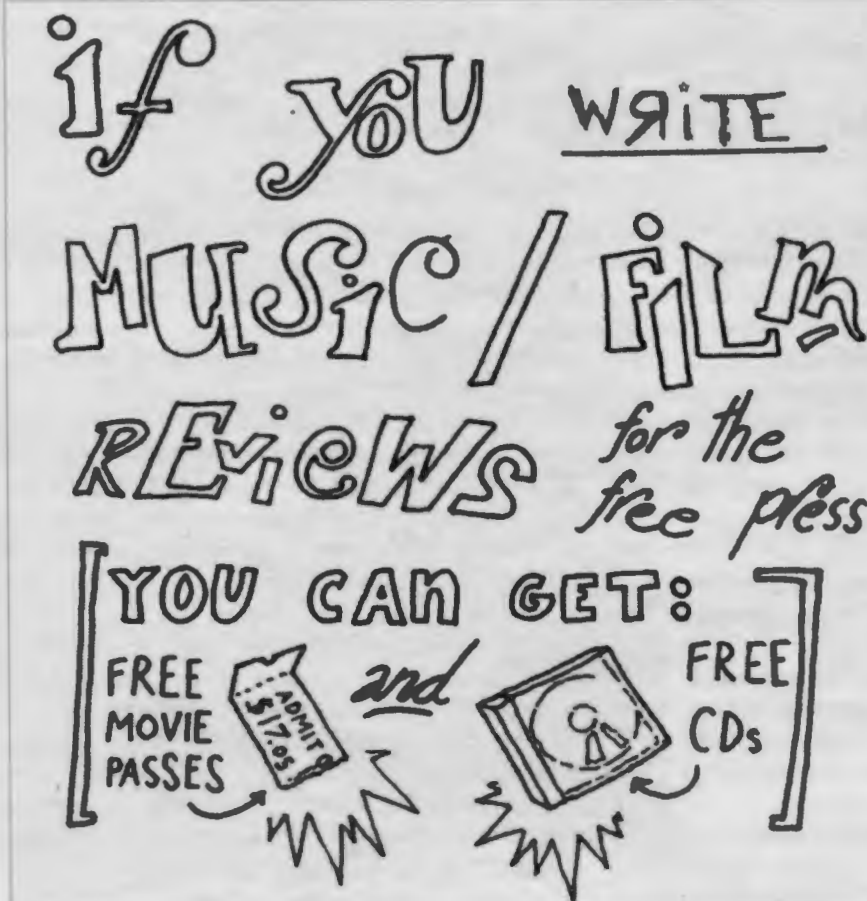 if you WRiTE
MUSiC / FiLm
REVieWS for the
free press
YOU CAN GET:
FREE MOVIE PASSES
ADMIT
$17.05
and
FREE CDs